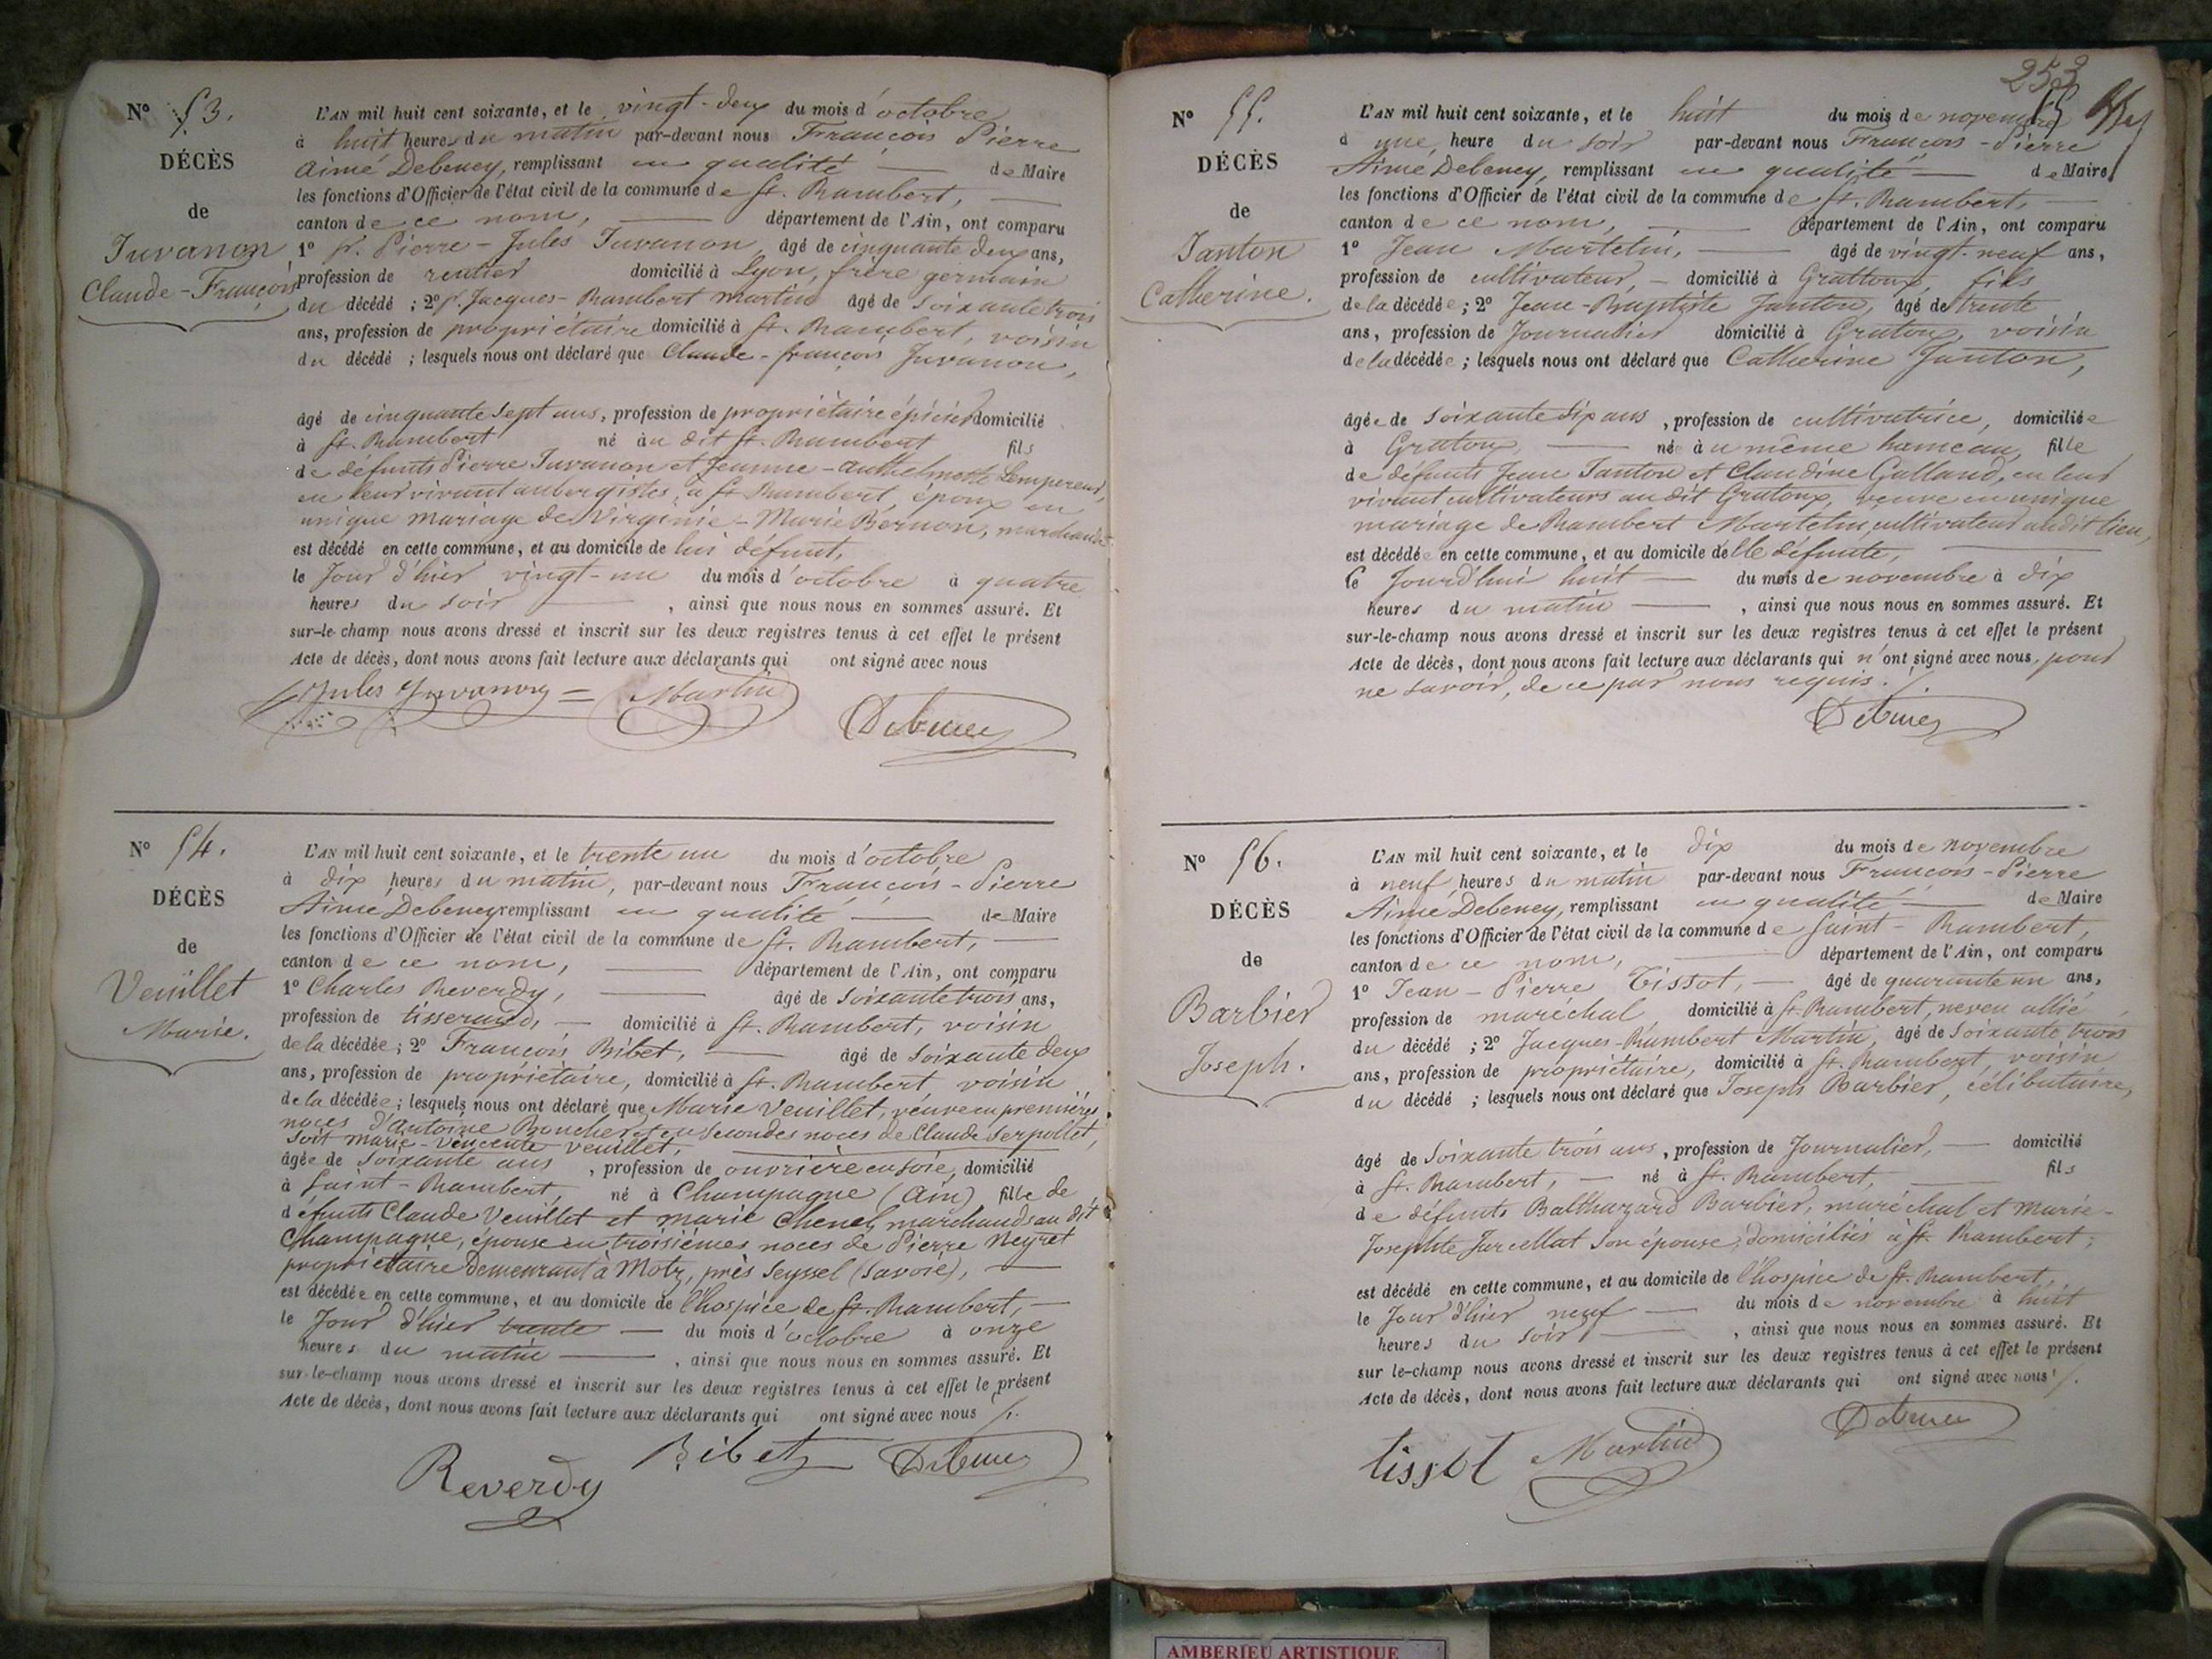 N° 53.
DÉCÈS
de
Juvanon
Claude-François
L'AN mil huit cent soixante, et le vingt-deux du mois d'octobre
à huit heures du matin par-devant nous François Pierre
Aimé Debeney, remplissant en qualité — de Maire
les fonctions d'Officier de l'état civil de la commune de St. Rambert, —
canton de ce nom, — département de l'Ain, ont comparu
1° Sr. Pierre-Jules Juvanon, âgé de cinquante deux ans,
profession de rentier domicilié à Lyon, frère germain
du décédé ; 2° Sr. Jacques-Rambert Martin âgé de soixante trois
ans, profession de propriétaire domicilié à St. Rambert, voisin
du décédé ; lesquels nous ont déclaré que Claude-françois Juvanon,
âgé de cinquante sept ans, profession de propriétaire épicier domicilié
à St. Rambert né au dit St. Rambert fils
de défunts Pierre Juvanon et Jeanne-Anthelmette Lempereur,
en leur vivant aubergistes, à St Rambert, époux en
unique mariage de Virginie-Marie Bernon, marchande
est décédé en cette commune, et au domicile de lui défunt,
le Jour d'hier vingt-un du mois d'octobre à quatre
heures du soir — , ainsi que nous nous en sommes assuré. Et
sur-le-champ nous avons dressé et inscrit sur les deux registres tenus à cet effet le présent
Acte de décès, dont nous avons fait lecture aux déclarants qui ont signé avec nous
Jules Juvanon = Martin
Debeney
N° 54.
DÉCÈS
de
Venillet
Marie.
L'AN mil huit cent soixante, et le trente un du mois d'octobre
à dix heures du matin, par-devant nous François-Pierre
Aimé Debeney remplissant en qualité — de Maire
les fonctions d'Officier de l'état civil de la commune de St. Rambert, —
canton de ce nom, — département de l'Ain, ont comparu
1° Charles Reverdy, — âgé de soixante trois ans,
profession de tisserand, — domicilié à St. Rambert, voisin
de la décédée ; 2° François Bibet, — âgé de soixante deux
ans, profession de propriétaire, domicilié à St. Rambert, voisin
de la décédée ; lesquels nous ont déclaré que Marie Venillet, veuve en premières
noces d'Antoine Boucher et en secondes noces de Claude Serpollet,
soit marie-vincente venillet,
âgée de soixante ans , profession de ouvrière en soie, domicilié
à Saint-Rambert, né à Champagne (Ain) fille de
défunts Claude Venillet et marie Chenel, marchands au dit
Champagne, épouse en troisièmes noces de Pierre Neyret
propriétaire demeurant à Motz, près Seyssel (Savoie), —
est décédée en cette commune, et au domicile de l'hospice de St. Rambert, —
le Jour d'hier trente — du mois d'octobre à onze
heures du matin — , ainsi que nous nous en sommes assuré. Et
sur-le-champ nous avons dressé et inscrit sur les deux registres tenus à cet effet le présent
Acte de décès, dont nous avons fait lecture aux déclarants qui ont signé avec nous /.
Reverdy Bibet Debeney
253
N° 55.
DÉCÈS
de
Janton
Catherine.
L'AN mil huit cent soixante, et le huit du mois de novembre
à une heure du soir par-devant nous François-Pierre
Aimé Debeney, remplissant en qualité — de Maire
les fonctions d'Officier de l'état civil de la commune de St. Rambert, —
canton de ce nom, — département de l'Ain, ont comparu
1° Jean Martelin, — âgé de vingt-neuf ans,
profession de cultivateur, — domicilié à Grattoux, fils
de la décédée ; 2° Jean-Baptiste Janton, âgé de trente
ans, profession de Journalier domicilié à Gratoux, voisin
de la décédée ; lesquels nous ont déclaré que Catherine Janton,
âgée de soixante dix ans , profession de cultivatrice, domiciliée
à Gratoux, — née au même hameau, fille
de défunts Jean Janton et Claudine Galland, en leur
vivant cultivateurs audit Gratoux, veuve en unique
mariage de Rambert Martelin, cultivateur audit lieu,
est décédée en cette commune, et au domicile d'elle défunte, —
le Jourd'hui huit — du mois de novembre à dix
heures du matin — , ainsi que nous nous en sommes assuré. Et
sur-le-champ nous avons dressé et inscrit sur les deux registres tenus à cet effet le présent
Acte de décès, dont nous avons fait lecture aux déclarants qui n'ont signé avec nous, pour
ne savoir, de ce par nous requis. /.
Debeney
N° 56.
DÉCÈS
de
Barbier
Joseph.
L'AN mil huit cent soixante, et le dix du mois de novembre
à neuf heures du matin par-devant nous François-Pierre
Aimé Debeney, remplissant en qualité — de Maire
les fonctions d'Officier de l'état civil de la commune de Saint-Rambert,
canton de ce nom, — département de l'Ain, ont comparu
1° Jean-Pierre Tissot, — âgé de quarante un ans,
profession de maréchal domicilié à St. Rambert, neveu allié
du décédé ; 2° Jacques-Rambert Martin, âgé de soixante trois
ans, profession de propriétaire, domicilié à St. Rambert, voisin
du décédé ; lesquels nous ont déclaré que Joseph Barbier, célibataire,
âgé de soixante trois ans, profession de Journalier, — domicilié
à St. Rambert, — né à St. Rambert, — fils
de défunts Balthazard Barbier, maréchal et marie-
Josephte Jurcellat son épouse, domiciliés à St. Rambert ;
est décédé en cette commune, et au domicile de l'hospice de St. Rambert,
le Jour d'hier neuf — du mois de novembre à huit
heures du soir — , ainsi que nous nous en sommes assuré. Et
sur le-champ nous avons dressé et inscrit sur les deux registres tenus à cet effet le présent
Acte de décès, dont nous avons fait lecture aux déclarants qui ont signé avec nous /.
Debeney
tissot Martin
AMBERIEU ARTISTIQUE